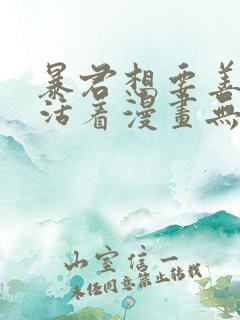 暴君想要善
活看漫畫無
山室信一
未經同意禁止轉載